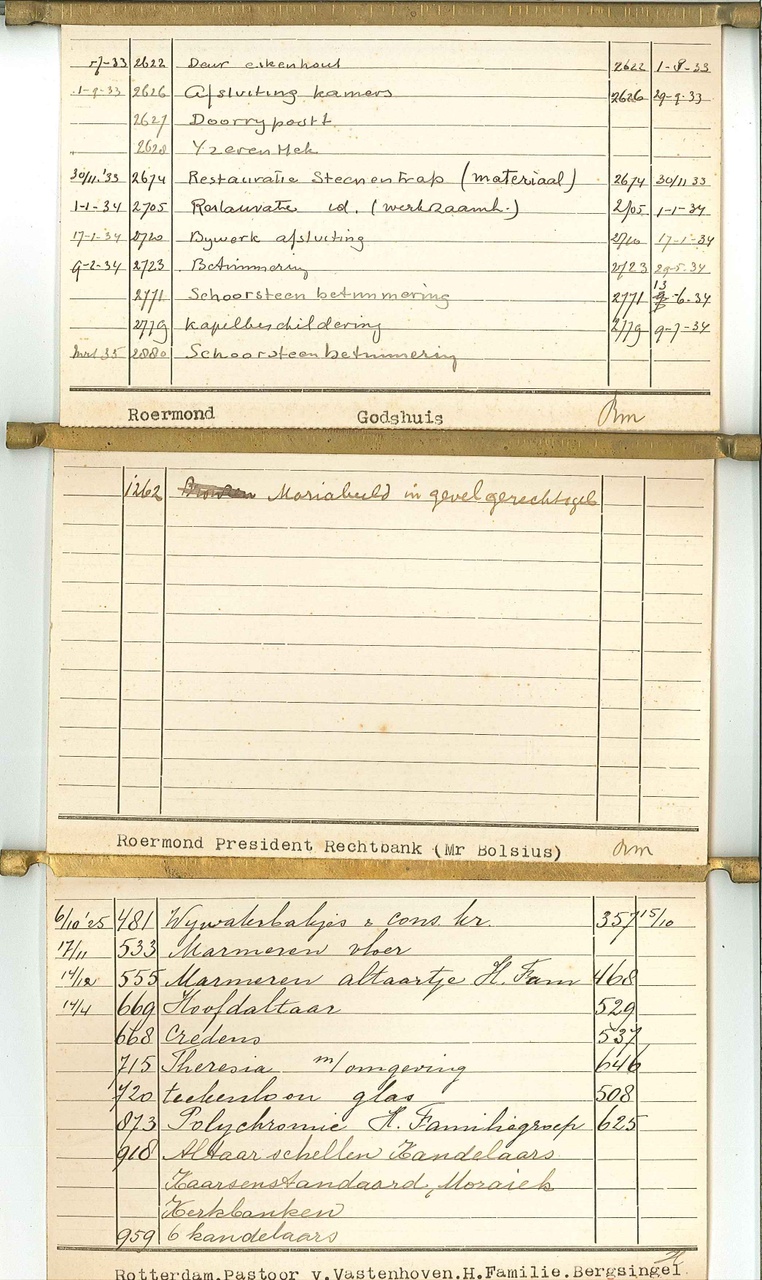 -33 2622 Deur eikenhout 2622 1-8-33
1-9-33 2626 Afsluiting kamers 2626 29-9-33
2627 Doorrypoort
2628 Yzeren Hek
30/11.'33 2674 Restauratie Steenentrap (materiaal) 2674 30/11 33
1-1-34 2705 Restauratie id. (werkzaamh.) 2705 1-1-34
17-1-34 2720 Bywerk afsluiting 2720 17-1-34
9-2-34 2723 Betimmering 2723 29-5-34
2771 Schoorsteen betimmering 2771 13 -6-34
2779 Kapelbeschildering 2779 9-7-34
35 2880 Schoorsteenbetimmering
Roermond Godshuis Rm
1262 Mariabeeld in gevel gerechtsgeb
Roermond President Rechtbank (Mr Bolsius) Rm
6/10'25 481 Wywaterbakjes & cons. kr. 357 15/10
17/11 533 Marmeren vloer
14/12 555 Marmeren altaartje H. Fam 468
14/4 669 Hoofdaltaar 529
668 Credens 537
715 Theresia m/omgeving 646
720 teekenloon glas 508
873 Polychromie H. Familiegroep 625
918 Altaarschellen Kandelaars
Kaarsenstandaard, Mozaiek
Kerkbanken
959 6 kandelaars
Rotterdam.Pastoor v.Vastenhoven.H.Familie.Bergsingel